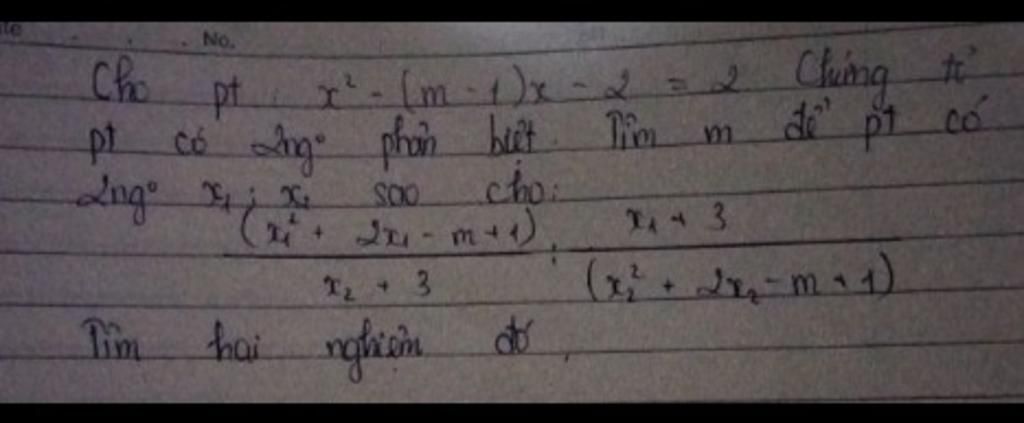 No.
Cho pt: x² - (m - 1)x - 2 = 2 Chứng tỏ
pt có 2ng° phân biệt. Tìm m để pt có
2ng° x₁; x₂ sao cho:
(x₁² + 2x₁ - m + 1) / x₂ + 3 : x₁ + 3 / (x₂² + 2x₂ - m + 1)
Tìm hai nghiệm đó.